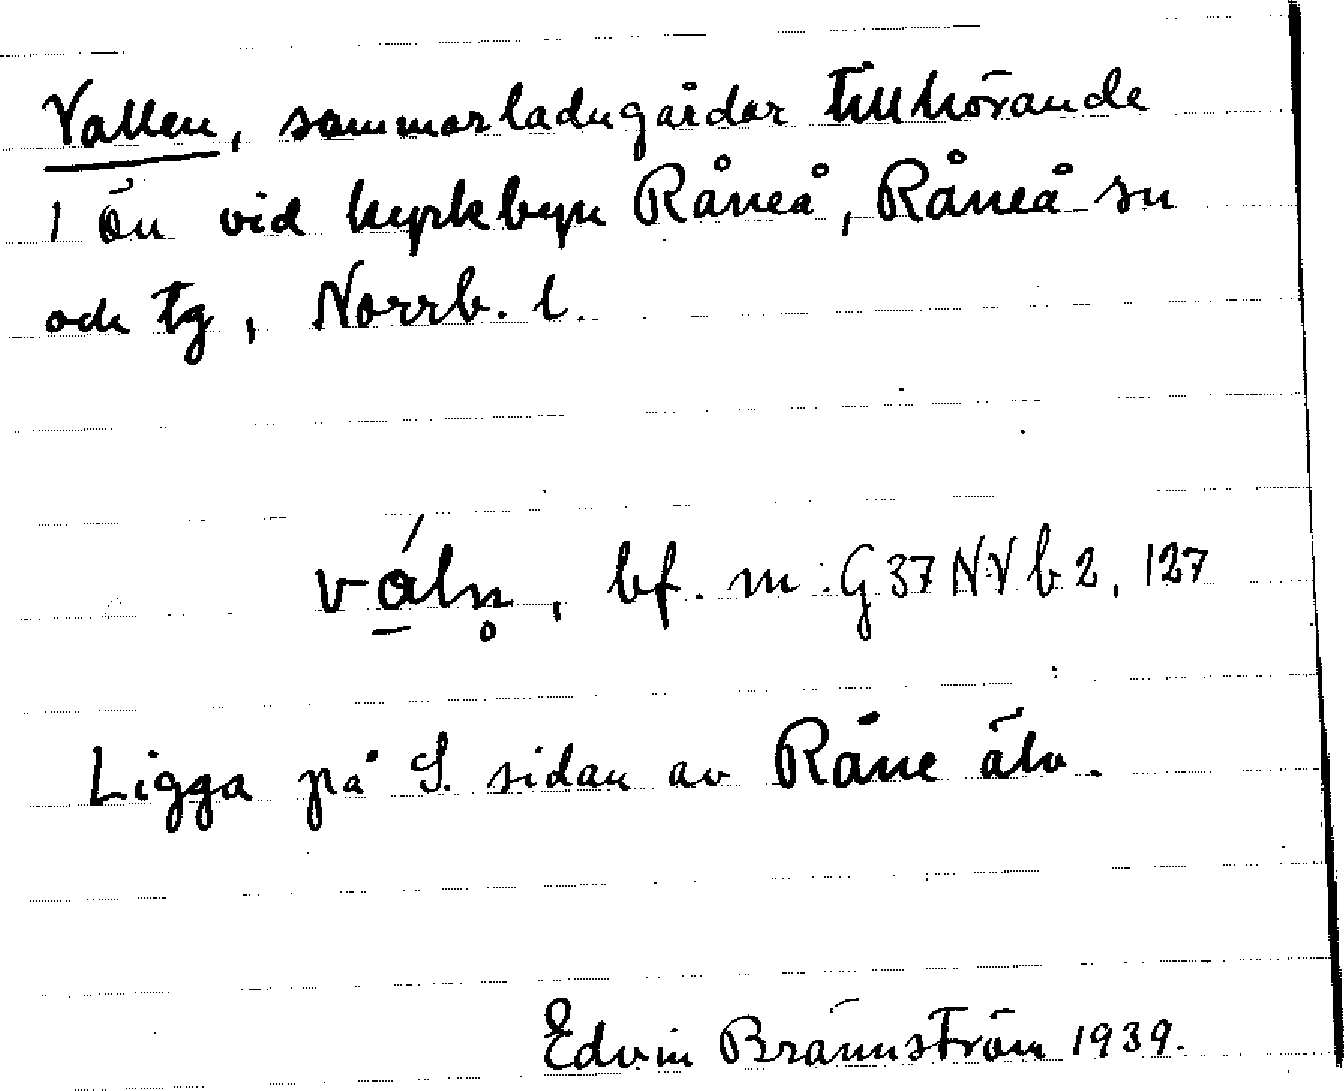 Vallen, sommarladugårdar tillhörande
i Ön vid kyrkbyn Råneå, Råneå sn
och tg, Norrb. l.
vá̱ln̥, bf. m. G 37 N:V b 2, 127
Ligga på S. sidan av Råne älv.
Edvin Brännström 1939.